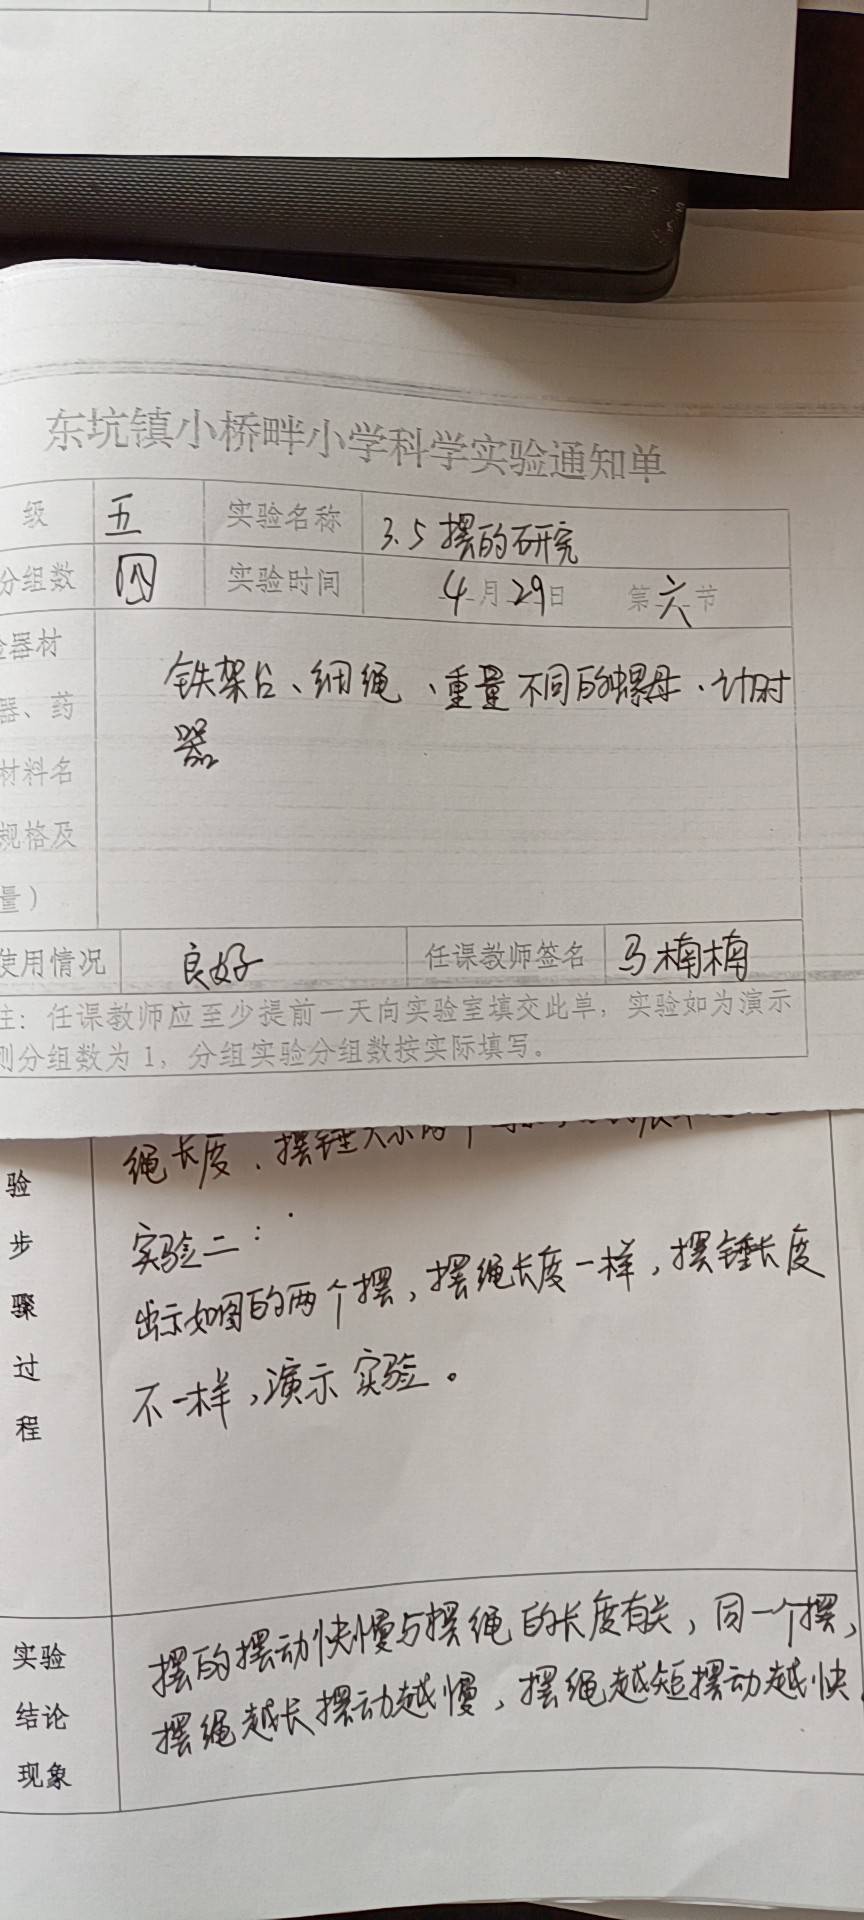 东坑镇小桥畔小学科学实验通知单
级 五 实验名称 3.5 摆的研究
分组数 四 实验时间 4月29日 第六节
器材
器、药
材料名
规格及
量）
铁架台、细绳、重量不同的螺母、计时
器
使用情况 良好 任课教师签名 马楠楠
注：任课教师应至少提前一天向实验室填交此单，实验如为演示
则分组数为1，分组实验分组数按实际填写。
验
步
骤
过
程
绳长度、摆锤大小
实验二：
出示如图的两个摆，摆绳长度一样，摆锤长度
不一样，演示实验。
实验
结论
现象
摆的摆动快慢与摆绳的长度有关，同一个摆，
摆绳越长摆动越慢，摆绳越短摆动越快